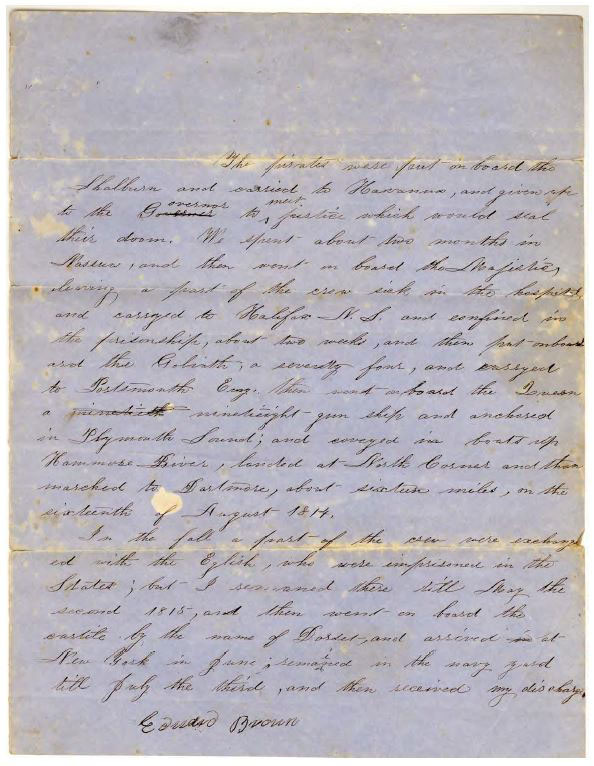 The pirates were put on board the
Shalburn and carried to Havanna, and given up
to the Governor overnor to meet justice which would seal
their doom. We spent about two months in
Nassau, and then went on board the Majestic,
leaving a part of the crew sick in the hospital
and carryed to Halifax N. S. and confined in
the prisonship, about two weeks, and then put onboard
ard the Goliath, a seventy four, and carryed
to Portsmouth Eng. then went onboard the Queen
a ninetieth ninetyeight gun ship and anchored
in Plymouth Sound; and coveyed in boats up
Hammore River, landed at North Corner and than
marched to Dartmore, about sixteen miles, on the
sixteenth of August 1814.
In the fall a part of the crew were exchang
ed with the Eglish, who were imprisoned in the
States; but I remaned there till May the
second 1815, and then went on board the
cartile by the name of Dorset, and arrived in at
New York in June; remained in the navy yard
till July the third, and then received my discharge.
Edward Brown